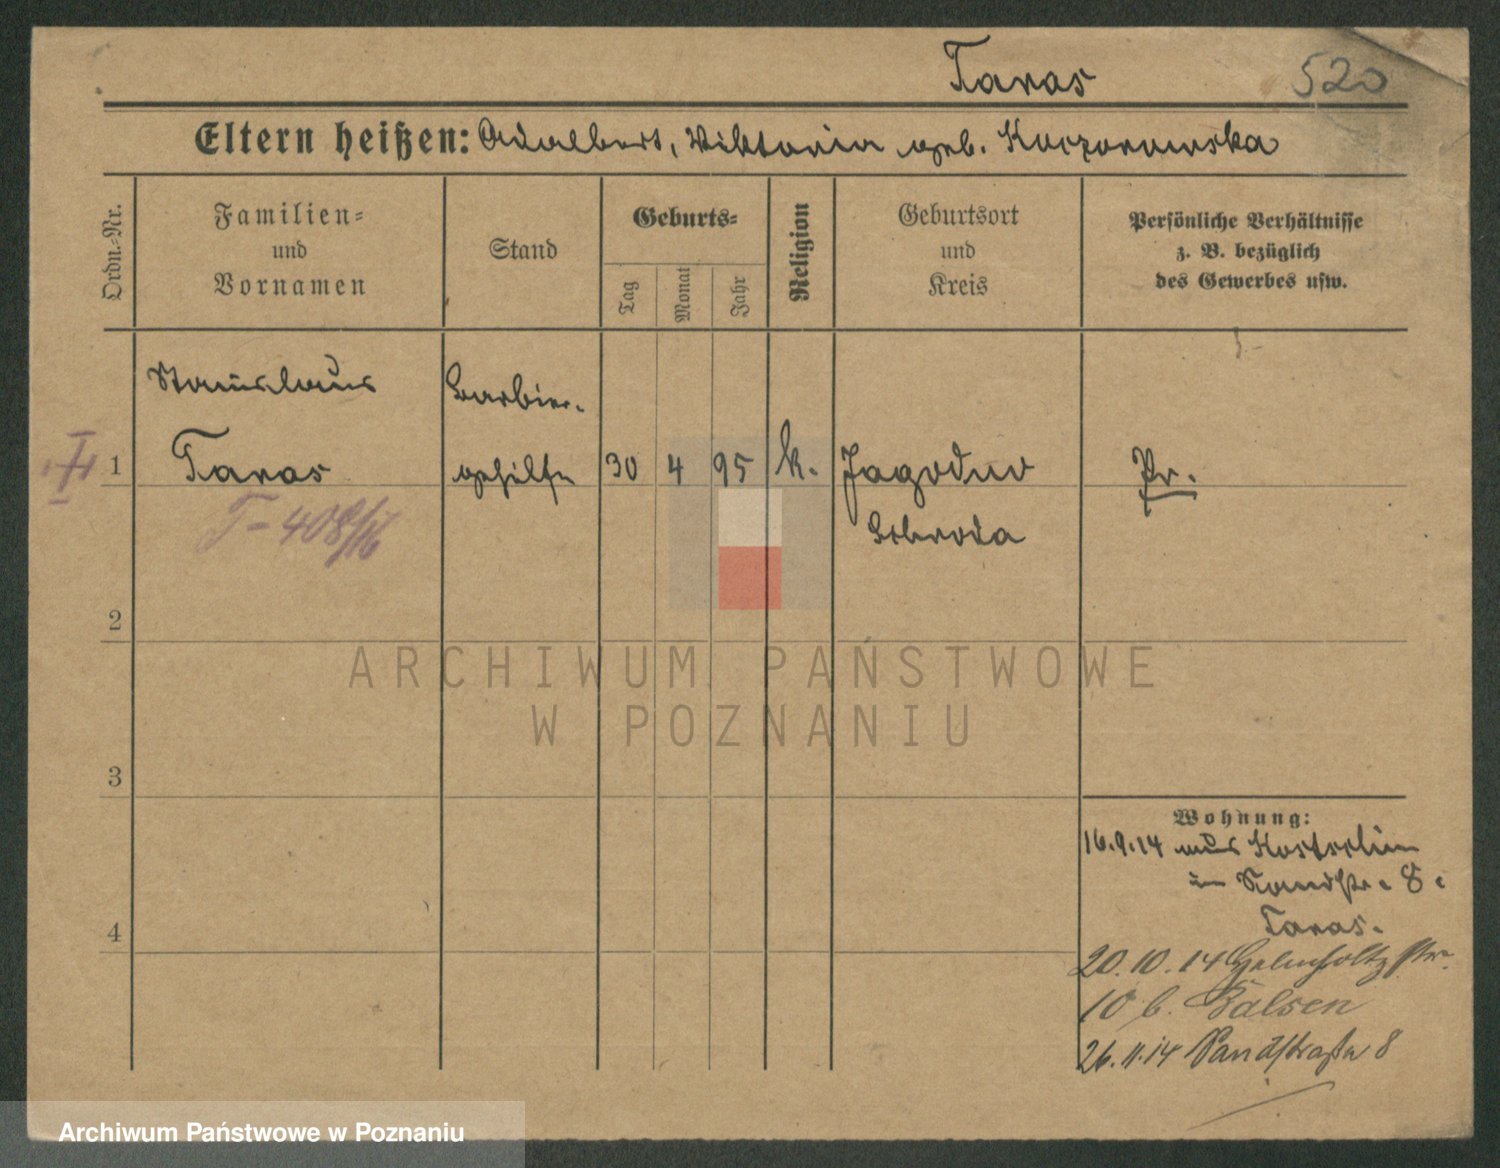 Taras
520
Eltern heißen: Adalbert, Viktoria geb. Kaczorowska
Ordn.-Nr.
Familien-
und
Vornamen
Stand
Geburts-
Tag
Monat
Jahr
Religion
Geburtsort
und
Kreis
Persönliche Verhältnisse
z. B. bezüglich
des Gewerbes usw.
1
Stanislaus
Taras
Barbier-
gehilfe
30
4
95
k.
Jagodno
Schroda
Pr.
T-408/16
2
3
4
Wohnung:
16.9.14 aus Kostschin
in Sandstr. 8.
Taras.
20.10.14 Helmholtzstr.
10 b.
26.11.14 Sandstraße 8
ARCHIWUM PAŃSTWOWE
W POZNANIU
Archiwum Państwowe w Poznaniu